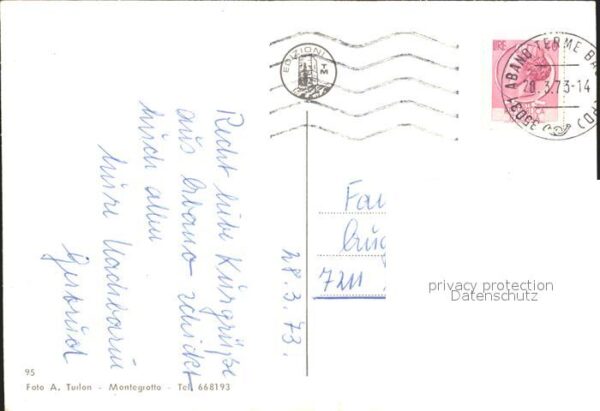 Recht liebe Kurgrüße
aus Abano schickt
euch allen
eure Nachbarin
Gertrud
28.3.73.
Fa
7211
EDIZIONI
TM
LIRE
35031 ABANO TERME BA
28.3.73-14
privacy protection
Datenschutz
95
Foto A. Turlon - Montegrotto - Tel. 668193